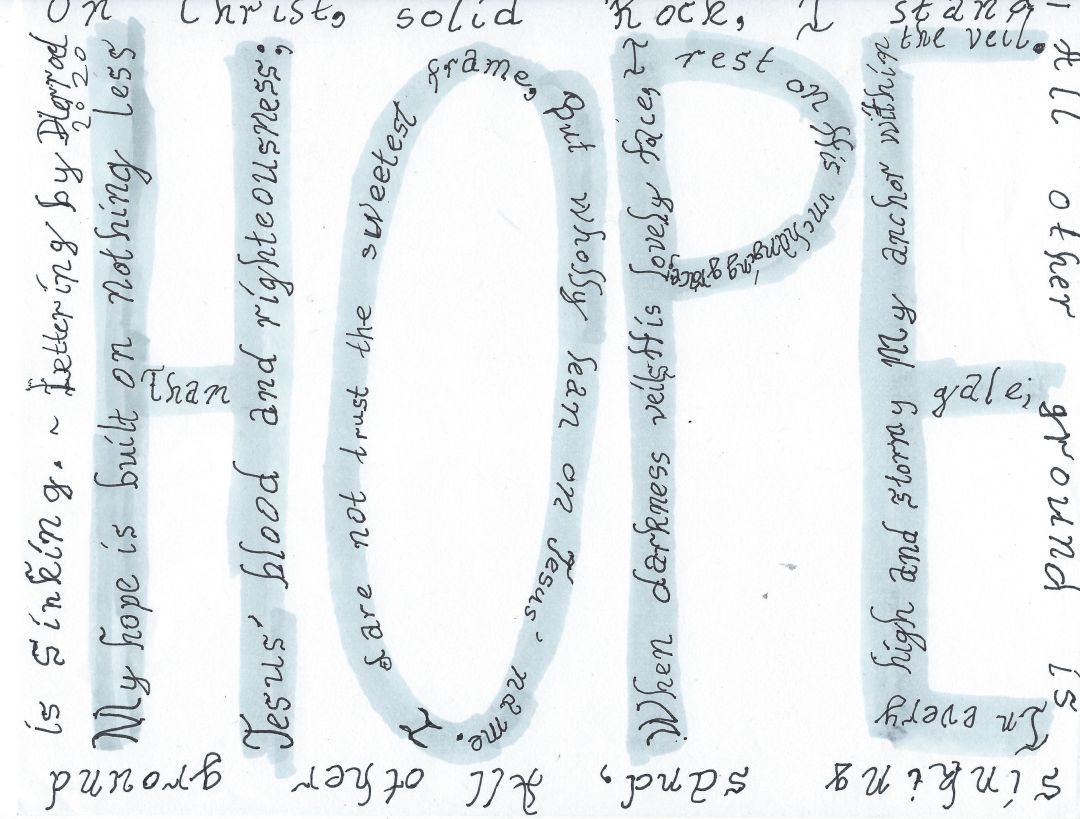 My hope is built on nothing less
Than
Jesus' blood and righteousness;
I dare not trust the sweetest frame,
But wholly lean on Jesus' name.
When darkness veils His lovely face,
I rest on His unchanging grace;
In every
high and stormy
gale;
My anchor within
the veil.
On Christ, solid Rock, I stand;
All other ground is
sinking sand, All other ground
is sinking. ~ Lettering by
2020